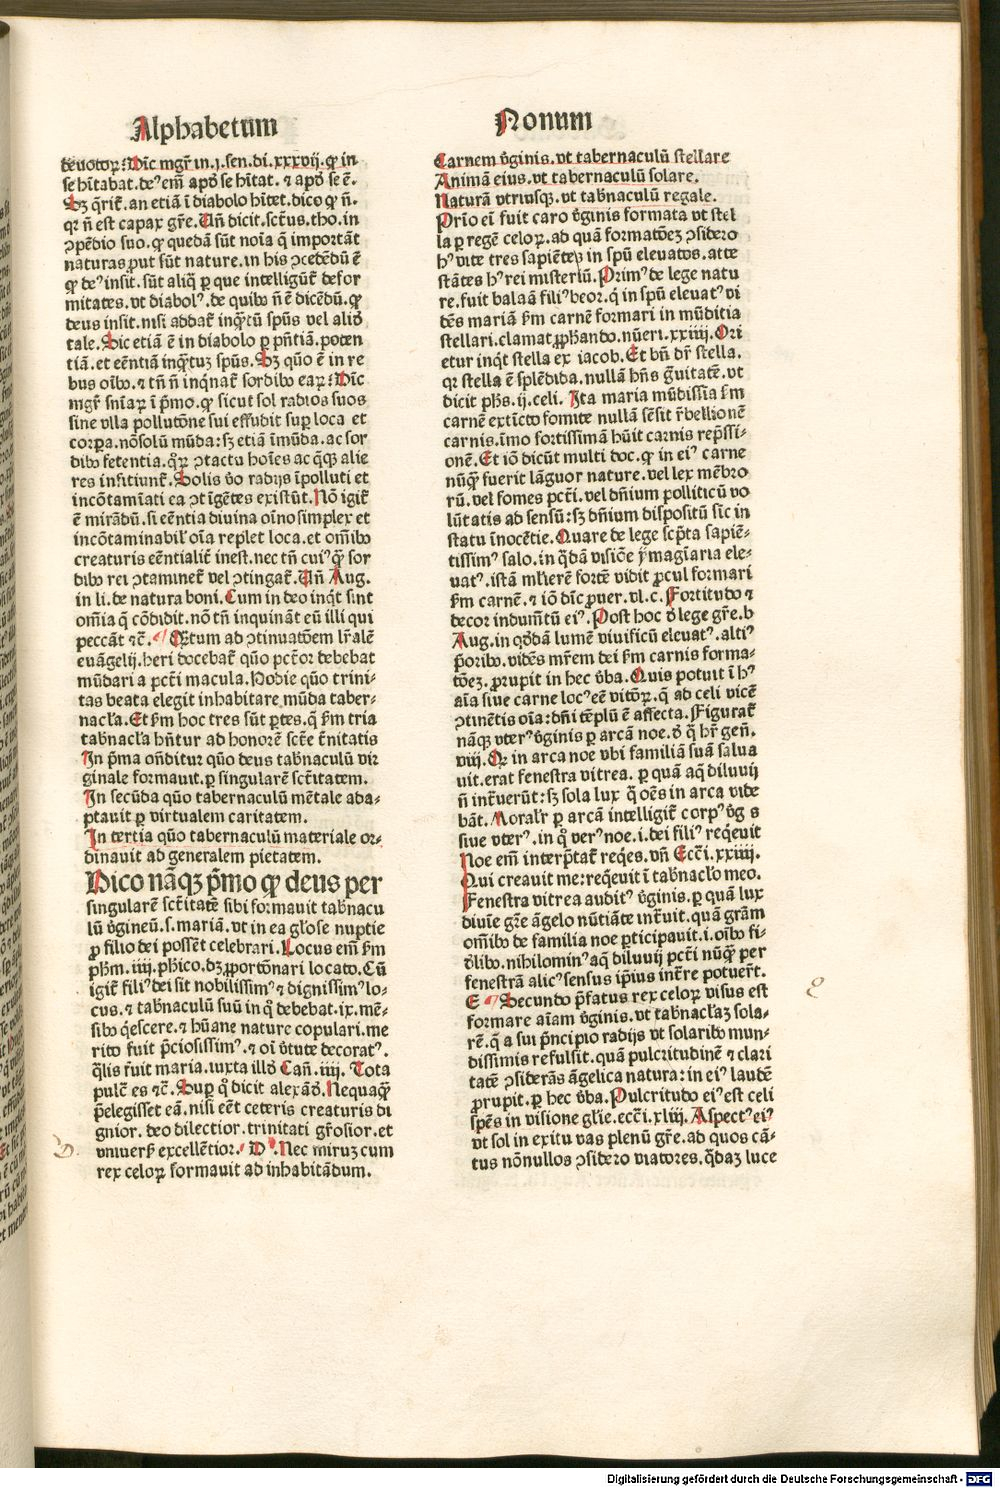 Alphabetum
Nonum
deuotoꝝ. Dic̄ mgr̄ in.ȷ.sen.di.xxxvij.ꝙ in
se hītabat.deꝰ em̄ apd̄ se hītat. ⁊ apd̄ se ē.
Sꝫ q̄rit̄.an etiā ī diabolo hītet.dico ꝙ n̄.
qꝛ n̄ est capax gr̄e. Un̄ dicit.sct̄us.tho.in
ꝯpēdio suo.ꝙ quedā sūt noīa q̄ importāt
naturas ꝓut sūt nature.in his ꝯcedēdū ē
ꝙ deꝰ insit.sūt aliq̄ ꝑ que intelligūt̄ defor
mitates.vt diabolꝰ.de quibꝰ n̄ ē dicēdū.ꝙ
deus insit.nisi addat̄ inq̄tū spūs vel aliq̄d
tale. Sic etiā ē in diabolo ꝑ pn̄tiā.poten
tiā.et eēntiā inq̄tuꝫ spūs. Sꝫ quō ē in re
bus oībꝰ.⁊ tn̄ n̄ inq̄nat̄ sordibꝰ eaꝝ: Dic̄
mgr̄ sn̄iaꝝ ī p̄mo.ꝙ sicut sol radios suos
sine vlla pollutōne sui effudit suꝑ loca et
corꝑa.nōsolū mūda:sꝫ etiā īmūda.ac sor
dibꝰ fetentia.q̄ꝝ ꝯtactu hoīes ac q̄qꝫ alie
res inficiunt̄. Solis v̄o radijs īpolluti et
incōtamīati ea ꝯtīgētes existūt. Nō igit̄
ē mirādū.si eēntia diuina oīno simplex et
incōtaminabilꝰ oīa replet loca.et om̄ibꝰ
creaturis eēntialit̄ inest.nec tn̄ cuiꝰq̄ sor
dibꝰ rei ꝯtaminet̄ vel ꝯtingat̄. Un̄ Aug.
in li.de natura boni. Cum in deo inq̄t sint
om̄ia q̄ cōdidit.nō tn̄ inquināt eū illi qui
peccāt ⁊c̄. Q̄tum ad ꝯtinuatōem lr̄alē
euāgelij.heri docebat̄ quō pct̄or debebat
mūdari a pct̄i macula. Hodie quō trini⸗
tas beata elegit inhabitare mūda taber⸗
nacl̄a. Et s̄m hoc tres sūt ꝑtes.q̄ s̄m tria
tab̄nacl̄a hn̄tur ad honorē sct̄e t̄nitatis
In p̄ma on̄ditur quō deus tab̄naculū vir
ginale formauit.ꝑ singularē sct̄itatem.
In secūda quō tabernaculū mētale ada⸗
ptauit ꝑ virtualem caritatem.
In tertia quō tabernaculū materiale or⸗
dinauit ad generalem pietatem.
Dico nāqꝫ p̄mo ꝙ deus per
singularē sct̄itatē sibi formauit tab̄nacu
lū v̄gineū.s.mariā.vt in ea gl̄ose nuptie
ꝓ filio dei possēt celebrari. Locus em̄ s̄m
ph̄m.iiij.ph̄ico.dꝫ ꝓportōnari locato. Cū
igit̄ filiꝰ dei sit nobilissimꝰ ⁊ dignissimꝰ lo⸗
cus.⁊ tab̄naculū suū in q̄ debebat.ix.mē⸗
sibꝰ q̄escere.⁊ hūane nature copulari.me
rito fuit p̄ciosissimꝰ.⁊ oī v̄tute decoratꝰ.
q̄lis fuit maria.iuxta illd̄ Cañ.iiij. Tota
pulc̄ es ⁊c̄. Suꝑ q̄ dicit alexād̄. Nequaq̄ꝫ
p̄elegisset eā.nisi eēt ceteris creaturis di
gnior.deo dilectior.trinitati gr̄osior.et
vniuers̄ excellētior. D Nec miruꝫ cum
rex celoꝝ formauit ad inhabitādum.
Carnem v̄ginis.vt tabernaculū stellare
Animā eius.vt tabernaculū solare.
Naturā vtriusqꝫ.vt tab̄naculū regale.
Prīo eī fuit caro v̄ginis formata vt stel
la ꝑ regē celoꝝ.ad quā formatōeꝫ ꝯsidero
hꝰ vite tres sapiētes in spū eleuatos.atte
stātes hꝰ rei misteriū. Primꝰ de lege natu
re.fuit balaā filiꝰ beor.q̄ in spū eleuatꝰ vi
dēs mariā s̄m carnē formari in mūditia
stellari.clamat ꝓph̄ando.nūeri.xxiiij. Ori
etur inq̄t stella ex iacob. Et bn̄ dr̄ stella.
qꝛ stella ē splēdida.nullā hn̄s ḡuitatē.vt
dicit ph̄s.ij.celi. Ita maria mūdissīa s̄m
carnē extīcto fomite nullā sēsit r̄bellionē
carnis.īmo fortissimā hūit carnis rep̄ssi⸗
onē. Et iō dicūt multi doc.ꝙ in eiꝰ carne
nūq̄ fuerit lāguor nature.vel lex mēbro
rū.vel fomes pct̄i.vel dn̄ium polliticū vo
lūtatis ad sensū:sꝫ dn̄ium dispositū sic in
statu īnocētie. Quare de lege scp̄ta sapiē⸗
tissimꝰ salo.in q̄dā visiōe ymagīaria ele⸗
uatꝰ.istā mlierē fortē vidit ꝓcul formari
s̄m carnē.⁊ iō dic̄ ꝓuer.vl.c. Fortitudo ⁊
decor indumtū eiꝰ. Post hoc d̄ lege gr̄e.b
Aug.in q̄dā lumē viuificū eleuatꝰ.altiꝰ
p̄oribꝰ.vidēs mr̄em dei s̄m carnis forma⸗
tōeꝫ.ꝓrupit in hec v̄ba. Quis potuit ī hꝰ
aīa siue carne locꝰ eē vitōꝝ.q̄ ad celi vicē
ꝯtinētis oīa:dn̄i tēplū ē affecta. Figurat̄
nāqꝫ vterꝰ v̄ginis ꝑ arcā noe.d̄ q̄ hr̄ gen̄.
viij. Qꝛ in arca noe vbi familiā suā salua
uit.erat fenestra vitrea. ꝑ quā aq̄ diluuij
n̄ int̄uerūt:sꝫ sola lux q̄ oēs in arca vide
bāt. Moralr̄ ꝑ arcā intelligit̄ corpꝰ v̄ḡ s
siue vterꝰ.in q̄ verꝰ noe.i.dei filiꝰ req̄euit
Noe em̄ interp̄tat̄ req̄es.vn̄ Ecc̄i.xxiiij.
Qui creauit me:req̄euit ī tab̄naclo meo.
Fenestra vitrea auditꝰ v̄ginis.ꝑ quā lux
diuīe gr̄e āgelo nūtiāte int̄uit.quā grām
om̄ibꝰ de familia noe ꝑticipauit.i.oībꝰ fi⸗
d̄libꝰ.nihilominꝰ aq̄ diluuij pct̄i nūq̄ per
fenestrā alicꝰ sensus ip̄ius int̄re potuer̄t.
E Secundo p̄fatus rex celoꝝ visus est
formare aīam v̄ginis.vt tab̄naclaꝫ sola⸗
rē.q̄ a sui p̄ncipio radijs vt solaribꝰ mun⸗
dissimis refulsit.quā pulcritudinē ⁊ clari
tatē ꝯsiderās āgelica natura:in eiꝰ laudē
ꝓrupit.ꝑ hec v̄ba. Pulcritudo eiꝰ est celi
sp̄es in visione gl̄ie.ecc̄i.xliij. Aspectꝰ eiꝰ
vt sol in exitu vas plenū gr̄e.ad quos cā⸗
tus nōnullos ꝯsidero viatores.q̄daꝫ luce
Digitalisierung gefördert durch die Deutsche Forschungsgemeinschaft - DFG